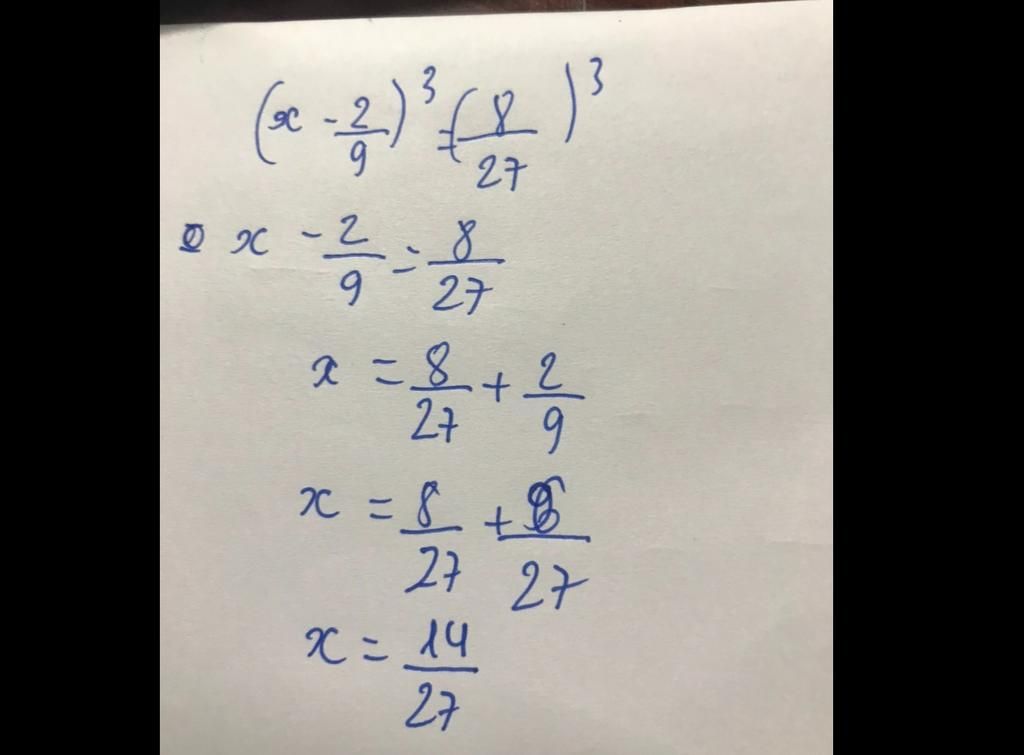 (x - 2/9)³ = (8/27)³
x - 2/9 = 8/27
x = 8/27 + 2/9
x = 8/27 + 6/27
x = 14/27